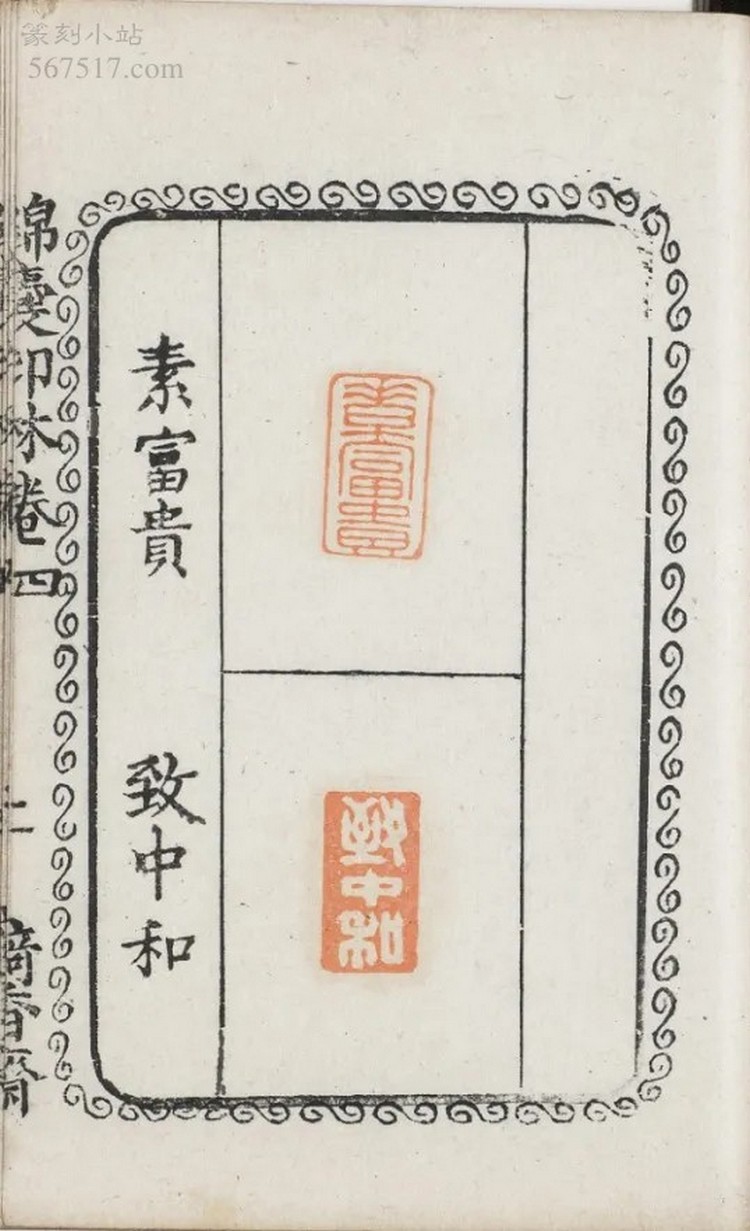 篆刻小站
567517.com
素富貴
致中和
素富貴
致中和
錦囊印林卷四
摛香齋